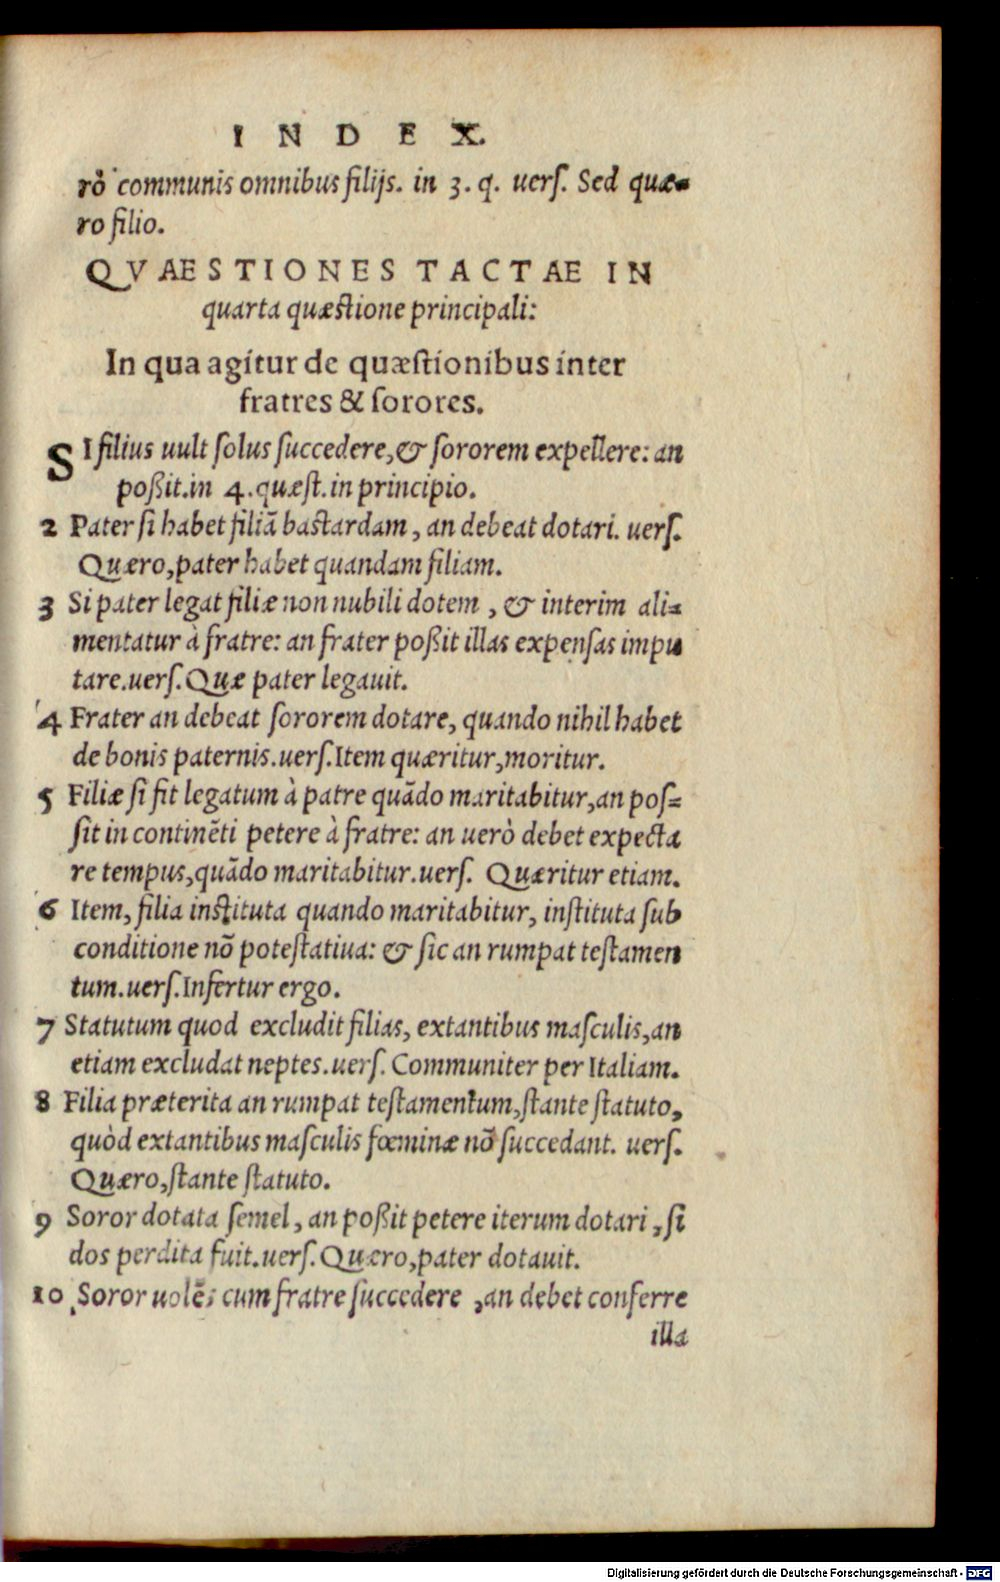 INDEX.
rò communis omnibus filijs. in 3. q. uers. Sed quæ-
ro filio.
QVAESTIONES TACTAE IN
quarta quæstione principali:
In qua agitur de quæstionibus inter
fratres & sorores.
SI filius uult solus succedere, & sororem expellere: an
poßit. in 4. quæst. in principio.
2 Pater si habet filiā bastardam, an debeat dotari. uers.
Quæro, pater habet quandam filiam.
3 Si pater legat filiæ non nubili dotem, & interim ali-
mentatur à fratre: an frater poßit illas expensas impu
tare. uers. Quæ pater legauit.
4 Frater an debeat sororem dotare, quando nihil habet
de bonis paternis. uers. Item quæritur, moritur.
5 Filiæ si fit legatum à patre quādo maritabitur, an pos-
sit in continēti petere à fratre: an uerò debet expecta
re tempus, quādo maritabitur. uers. Quæritur etiam.
6 Item, filia instituta quando maritabitur, instituta sub
conditione nō potestatiua: & sic an rumpat testamen
tum. uers. Infertur ergo.
7 Statutum quod excludit filias, extantibus masculis, an
etiam excludat neptes. uers. Communiter per Italiam.
8 Filia præterita an rumpat testamentum, stante statuto,
quòd extantibus masculis fœminæ nō succedant. uers.
Quæro, stante statuto.
9 Soror dotata semel, an poßit petere iterum dotari, si
dos perdita fuit. uers. Quæro, pater dotauit.
10 Soror uolēs cum fratre succedere, an debet conferre
illa
Digitalisierung gefördert durch die Deutsche Forschungsgemeinschaft - DFG